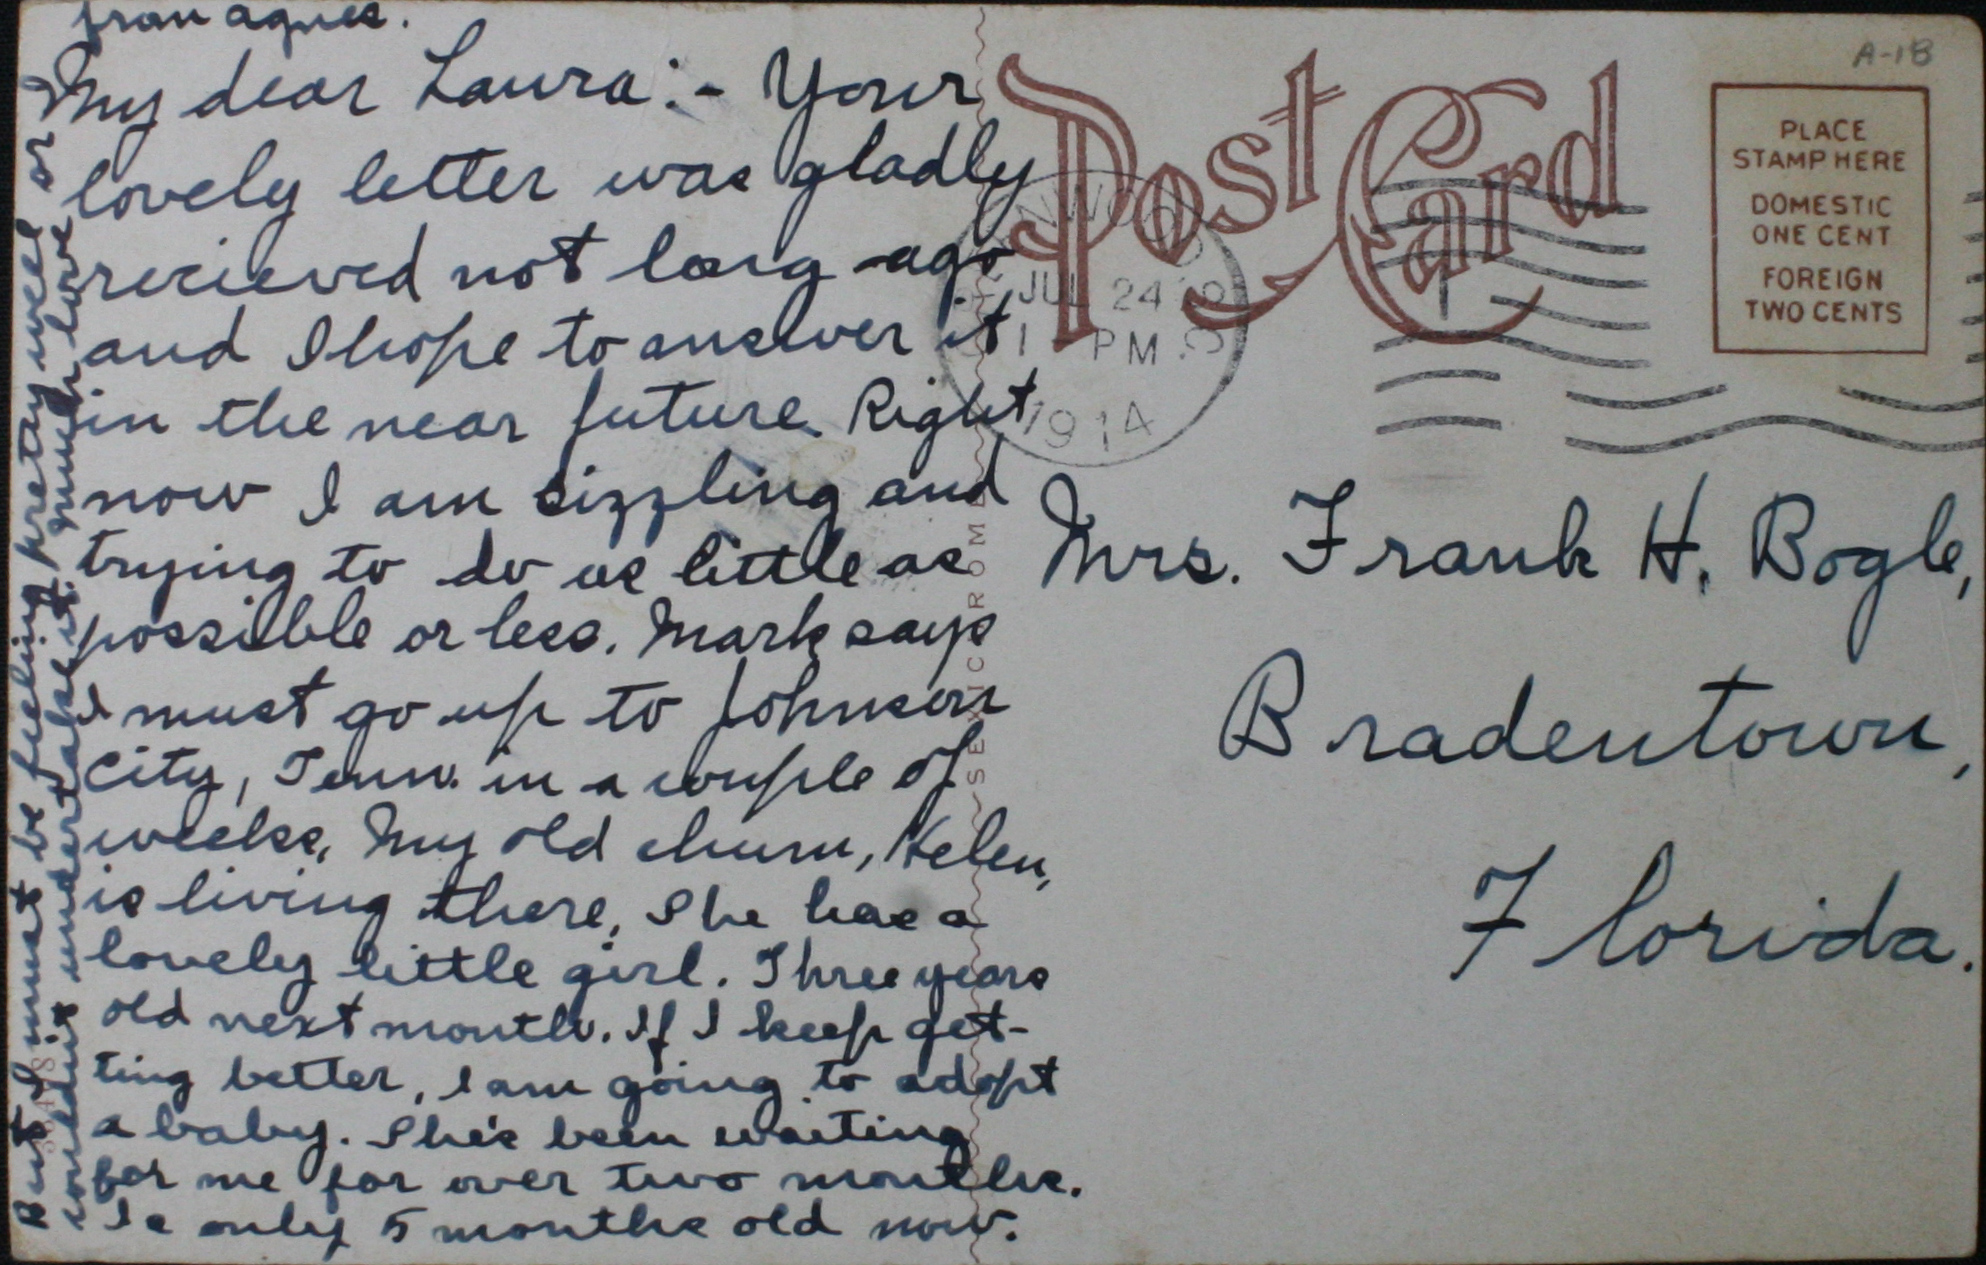 My dear Laura:- Your
lovely letter was gladly
recieved not long ago
and I hope to answer it
in the near future. Right
now I am sizzling and
trying to do as little as
possible or less. Mark says
I must go up to Johnson
City, Tenn. in a couple of
weeks. My old chum, Helen,
is living there. She has a
lovely little girl. Three years
old next month. If I keep get-
ting better, I am going to adopt
a baby. She's been waiting
for me for over two months.
Is only 5 months old now.
But I must be feeling pretty well or
wouldn't undertake it. Much love
from Agnes.
Post Card
A-18
PLACE
STAMP HERE
DOMESTIC
ONE CENT
FOREIGN
TWO CENTS
JUL 24
1 PM
1914
Mrs. Frank H. Bogle,
Bradentown,
Florida.